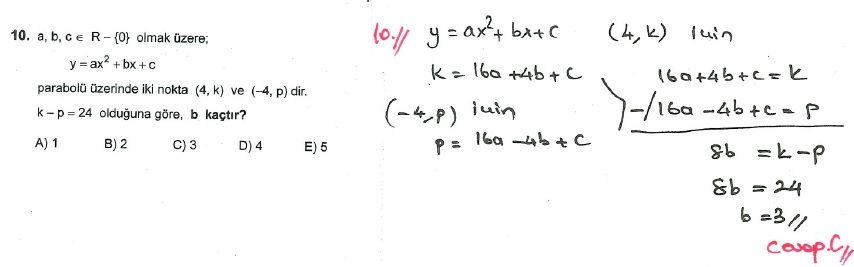 10. a, b, c ∈ R – {0} olmak üzere;
y = ax² + bx + c
parabolü üzerinde iki nokta (4, k) ve (–4, p) dir.
k – p = 24 olduğuna göre, b kaçtır?
A) 1 B) 2 C) 3 D) 4 E) 5
10.// y = ax² + bx + c (4, k) için
k = 16a + 4b + c
(-4, p) için
p = 16a - 4b + c
16a + 4b + c = k
-/16a - 4b + c = p
8b = k - p
8b = 24
b = 3//
Cevap.C//